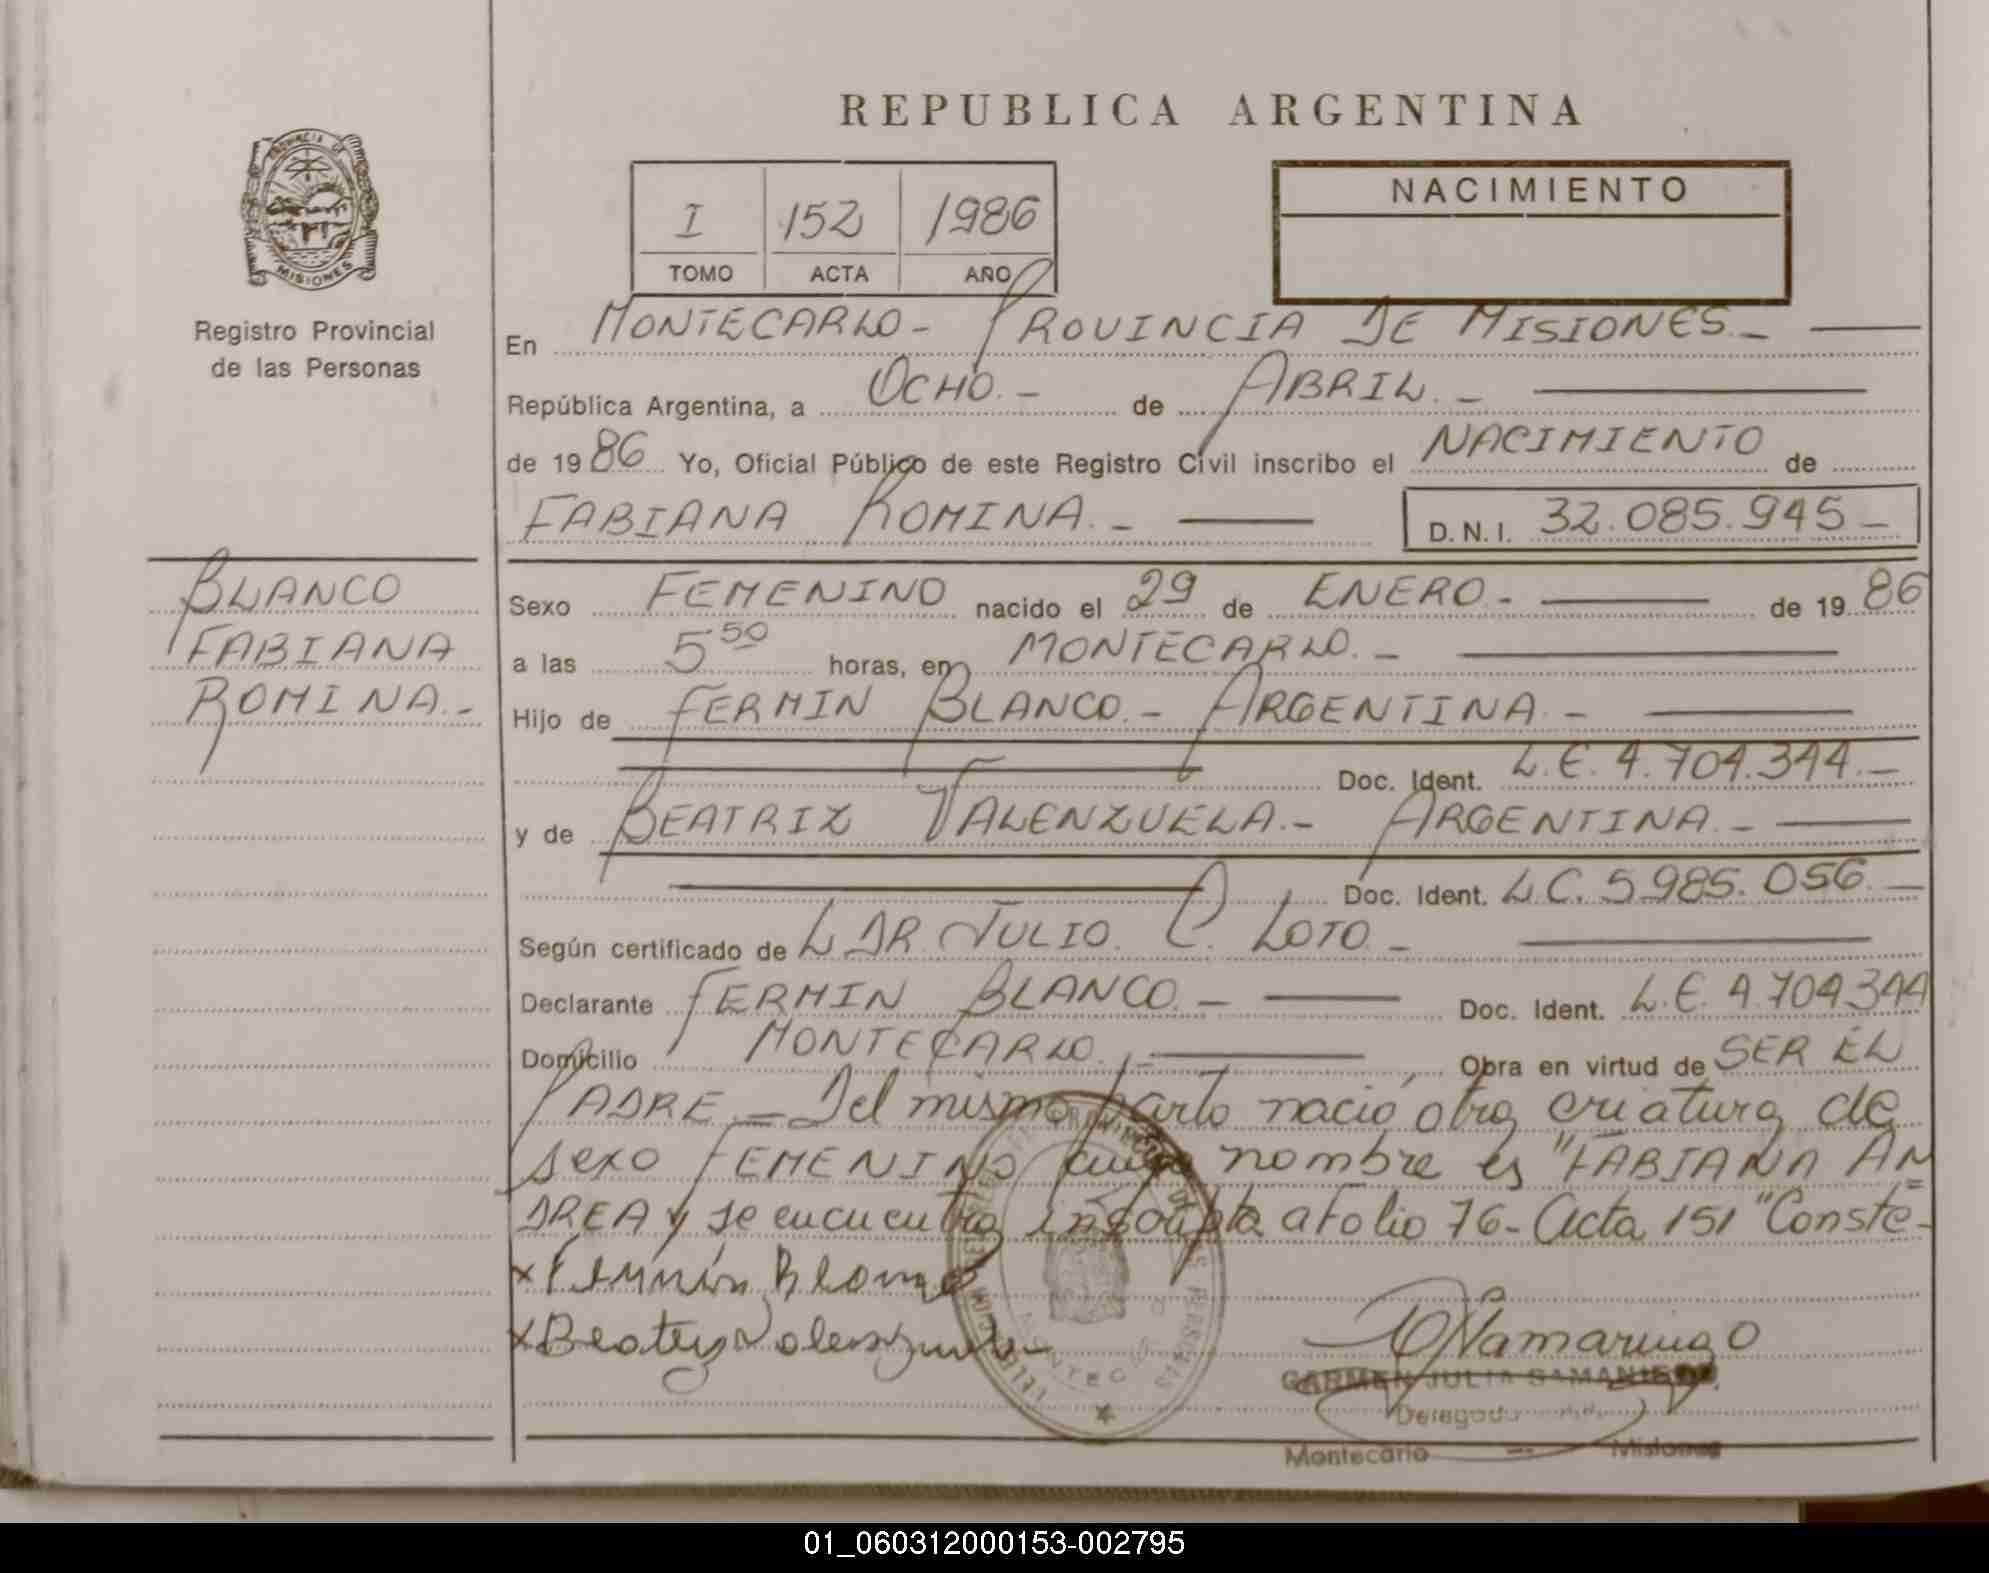 REPUBLICA ARGENTINA
PROVINCIA DE
MISIONES
Registro Provincial
de las Personas
I 152 1986
TOMO ACTA AÑO
NACIMIENTO
En MONTECARLO - PROVINCIA DE MISIONES. -
República Argentina, a OCHO. - de ABRIL. -
de 1986 Yo, Oficial Público de este Registro Civil inscribo el NACIMIENTO de
FABIANA ROMINA. - D.N.I. 32.085.945 -
BLANCO
FABIANA
ROMINA. -
Sexo FEMENINO nacido el 29 de ENERO. - de 1986
a las 5 50 horas, en MONTECARLO. -
Hijo de FERMIN BLANCO. - ARGENTINA. -
Doc. Ident. L.E. 4.704.344. -
y de BEATRIZ VALENZUELA. - ARGENTINA. -
Doc. Ident. L.C. 5.985.056. -
Según certificado de L DR. JULIO. C. LOTO -
Declarante FERMIN BLANCO. - Doc. Ident. L.E. 4.704.344
Domicilio MONTECARLO. - Obra en virtud de SER EL
PADRE. - Del mismo parto nació otra criatura de
sexo FEMENINO cuyo nombre es "FABIANA AN
DREA y se encuentra inscripta a Folio 76 - Acta 151 "Conste -
x Fermín Blanco
x Beatriz Valenzuela
CARMEN JULIA SAMANIEGO
Delegada
Montecarlo - Misiones
01_060312000153-002795